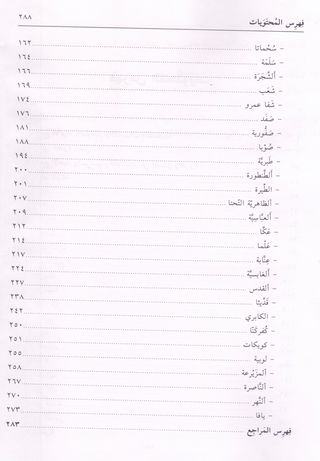 فِهرِس المُحتَوَيات ٢٨٨
– سُحْماتا ١٦٢
– سَلَمَة ١٦٤
– ألشَّجَرَة ١٦٦
– شَعَب ١٦٩
– شَفا عمرو ١٧٤
– صَفَد ١٧٦
– صَفُّورية ١٨١
– صُوْبا ١٨٨
– طَبريَّة ١٩٤
– ألطَّنطورة ٢٠٠
– الطّيرة ٢٠١
– ألظاهريَّة التَّحتا ٢٠٧
– ألعبَّاسِيَّة ٢٠٩
– عَكَّا ٢١٢
– عَلْما ٢١٤
– عِنَّابة ٢١٧
– ألعَابسيَّة ٢٢٤
– ألقدس ٢٢٧
– قَدِّيثا ٢٣٨
– الكابري ٢٤٢
– كُفركَنَّا ٢٥٠
– كويكات ٢٥١
– لوبية ٢٥٥
– ألمزَيْرعة ٢٥٨
– ألنَّاصرة ٢٦٧
– ألنَّهر ٢٧٠
– يافا ٢٧٣
فِهرِس المَراجِع ٢٨٣